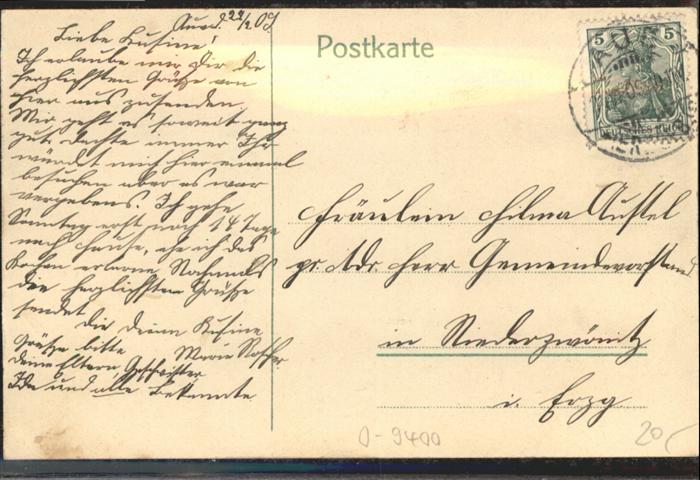 Aue d. 22/2 09
Liebe Kusine!
Ich erlaube mir Dir die
herzlichsten Grüße von
hier aus zusenden.
Mir geht es soweit ganz
gut, dachte immer Ihr
würdet mich hier einmal
besuchen aber es war
vergebens. Ich gehe
Sonntag erst nach 14 Tage
nach Hause, ehe ich das
Kochen erlerne Nochmals
die herzlichsten Grüße
sendet
Dir Deine Kusine
Grüße bitte Marie
deine Eltern Geschwister
Ida und alle Bekannte
Postkarte
5 5
DEUTSCHES REICH
AUE
Fräulein Hilma Austel
pr. Adr. Herr Gemeindevorstand
in Niederzwönitz
i. Erzg
0-9400
20,